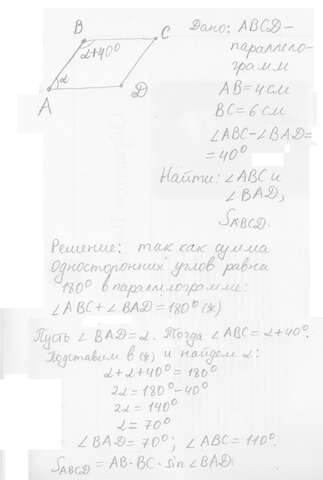 B
C
α+40°
α
A
D
Дано: ABCD-
параллело-
грамм
AB=4см
BC=6см
∠ABC-∠BAD=
=40°
Найти: ∠ABC и
∠BAD,
S ABCD.
Решение: так как сумма
односторонних углов равна
180° в параллелограмме:
∠ABC+∠BAD=180° (*)
Пусть ∠BAD=α. Тогда ∠ABC=α+40°.
Подставим в (*) и найдем α:
α+α+40°=180°
2α=180°-40°
2α=140°
α=70°
∠BAD=70°; ∠ABC=110°.
S ABCD = AB·BC·sin∠BAD